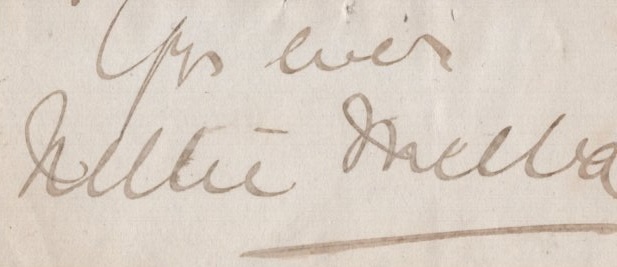 Yrs ever
Nellie Melba